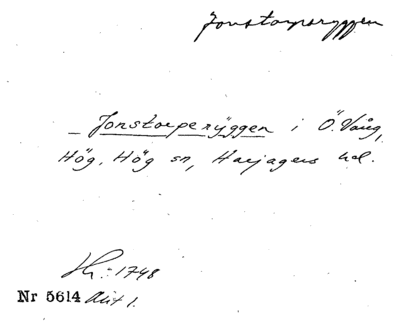 Jonstorpsryggen
– Jonstorpsryggen i Ö. Vång,
Hög. Hög sn, Harjagers hd.
Hr: 1748
Nr 5614 Akt 1.